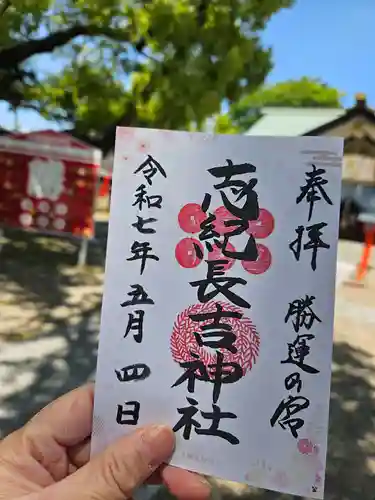 奉拝
勝運の宮
志紀長吉神社
令和七年五月四日